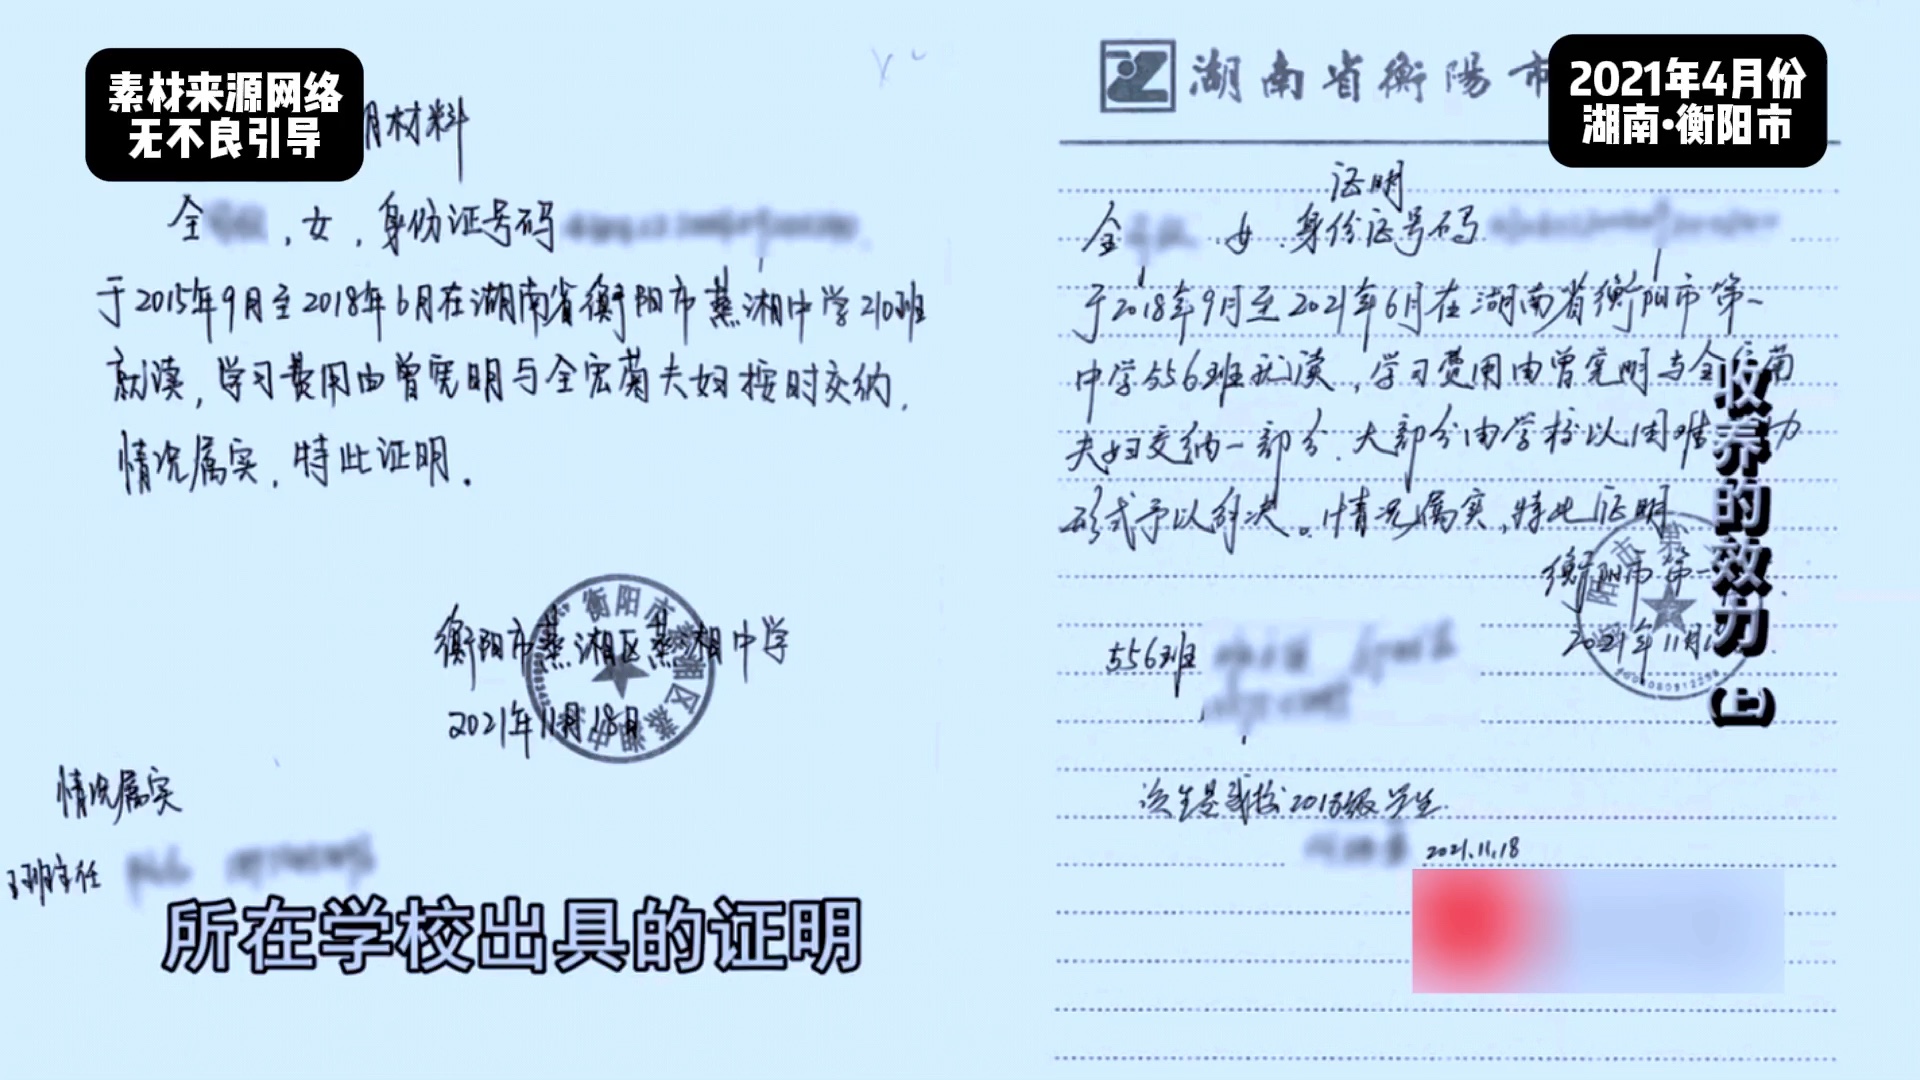 素材来源网络
无不良引导
2021年4月份
湖南·衡阳市
明材料
全
,女,身份证号码
于2015年9月至2018年6月在湖南省衡阳市蒸湘中学210班
就读,学习费用由曾宪明与全宏菊夫妇按时交纳.
情况属实,特此证明.
衡阳市蒸湘区蒸湘中学
2021年11月18日
情况属实
班主任
所在学校出具的证明
湖南省衡陽市
证明
全
女.身份证号码
于2018年9月至2021年6月在湖南省衡阳市第一
中学556班就读,学习费用由曾宪明与全 菊
夫妇交纳一部分.大部分由学校以困难 力
形式予以解决。情况属实,特此证明
衡阳市第一
2021年11月
556班
该生是我校2018级学生.
2021.11.18
收养的效力(上)